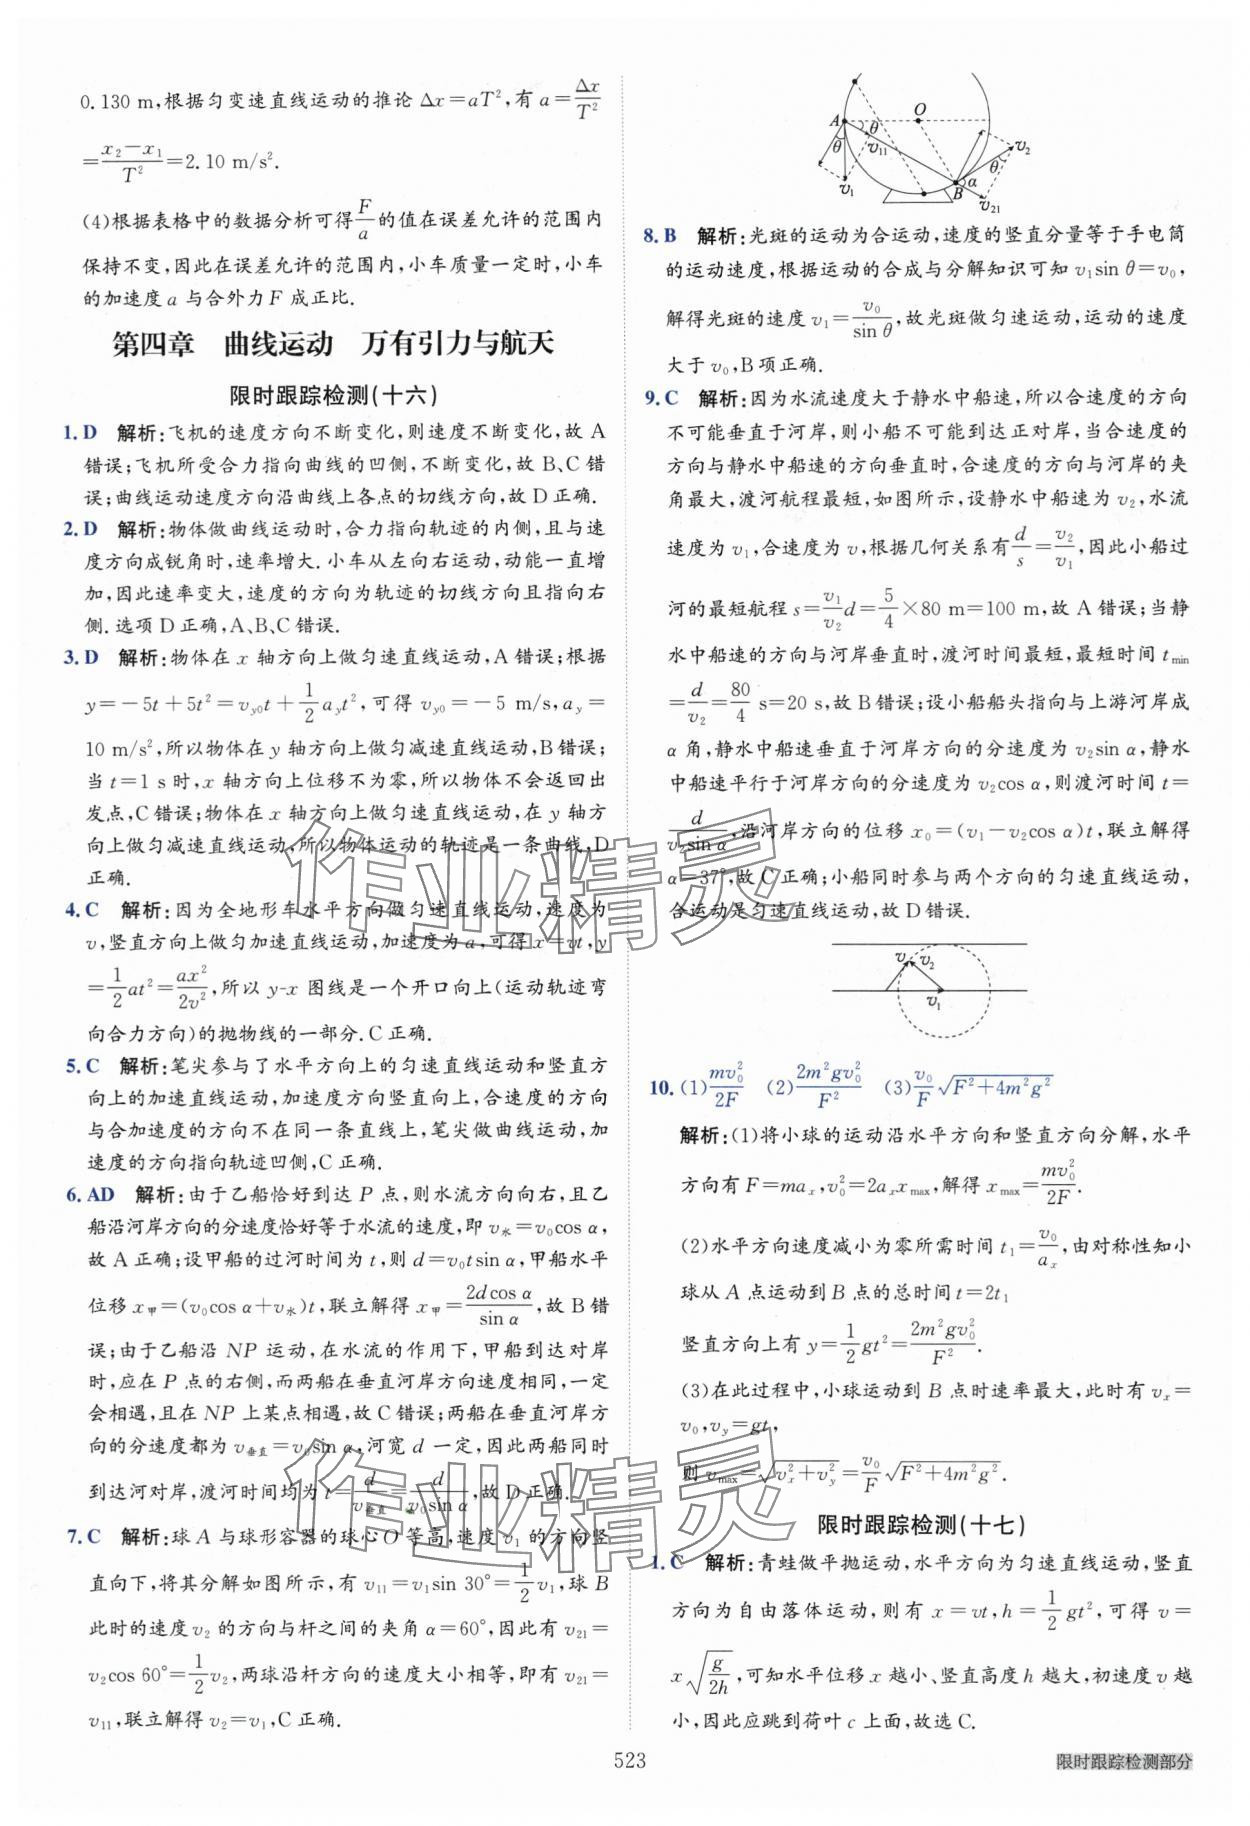 0.130 m,根据匀变速直线运动的推论 Δx=aT²,有 a=Δx/T²
=(x₂-x₁)/T²=2.10 m/s².
(4)根据表格中的数据分析可得F/a的值在误差允许的范围内
保持不变,因此在误差允许的范围内,小车质量一定时,小车
的加速度 a 与合外力 F 成正比.
第四章 曲线运动 万有引力与航天
限时跟踪检测(十六)
1. D 解析:飞机的速度方向不断变化,则速度不断变化,故 A
错误;飞机所受合力指向曲线的凹侧,不断变化,故 B、C 错
误;曲线运动速度方向沿曲线上各点的切线方向,故 D 正确.
2. D 解析:物体做曲线运动时,合力指向轨迹的内侧,且与速
度方向成锐角时,速率增大.小车从左向右运动,动能一直增
加,因此速率变大,速度的方向为轨迹的切线方向且指向右
侧.选项 D 正确,A、B、C 错误.
3. D 解析:物体在 x 轴方向上做匀速直线运动,A 错误;根据
y=-5t+5t²=v_y0 t+½a_y t²,可得 v_y0=-5 m/s,a_y=
10 m/s²,所以物体在 y 轴方向上做匀减速直线运动,B错误;
当 t=1 s 时,x 轴方向上位移不为零,所以物体不会返回出
发点,C错误;物体在 x 轴方向上做匀速直线运动,在 y 轴方
向上做匀减速直线运动,所以物体运动的轨迹是一条曲线,D
正确.
4. C 解析:因为全地形车水平方向做匀速直线运动,速度为
v,竖直方向上做匀加速直线运动,加速度为 a,可得 x=vt,y
=½at²=ax²/2v²,所以 y-x 图线是一个开口向上(运动轨迹弯
向合力方向)的抛物线的一部分.C 正确.
5. C 解析:笔尖参与了水平方向上的匀速直线运动和竖直方
向上的加速直线运动,加速度方向竖直向上,合速度的方向
与合加速度的方向不在同一条直线上,笔尖做曲线运动,加
速度的方向指向轨迹凹侧,C 正确.
6. AD 解析:由于乙船恰好到达 P 点,则水流方向向右,且乙
船沿河岸方向的分速度恰好等于水流的速度,即 v水=v₀cos α,
故 A 正确;设甲船的过河时间为 t,则 d=v₀tsin α,甲船水平
位移 x甲=(v₀cos α+v水)t,联立解得 x甲=2dcos α/sin α,故 B 错
误;由于乙船沿 NP 运动,在水流的作用下,甲船到达对岸
时,应在 P 点的右侧,而两船在垂直河岸方向速度相同,一定
会相遇,且在 NP 上某点相遇,故 C 错误;两船在垂直河岸方
向的分速度都为 v垂直=v₀sin α,河宽 d 一定,因此两船同时
到达河对岸,渡河时间均为 t=d/v垂直=d/(v₀sin α),故 D 正确.
7. C 解析:球 A 与球形容器的球心 O 等高,速度 v₁ 的方向竖
直向下,将其分解如图所示,有 v₁₁=v₁sin 30°=½v₁,球 B
此时的速度 v₂ 的方向与杆之间的夹角 α=60°,因此有 v₂₁=
v₂cos 60°=½v₂,两球沿杆方向的速度大小相等,即有 v₂₁=
v₁₁,联立解得 v₂=v₁,C 正确.
A O θ θ v₁₁ v₁ B α θ v₂ v₂₁
8. B 解析:光斑的运动为合运动,速度的竖直分量等于手电筒
的运动速度,根据运动的合成与分解知识可知 v₁sin θ=v₀,
解得光斑的速度 v₁=v₀/sin θ,故光斑做匀速运动,运动的速度
大于 v₀,B项正确.
9. C 解析:因为水流速度大于静水中船速,所以合速度的方向
不可能垂直于河岸,则小船不可能到达正对岸,当合速度的
方向与静水中船速的方向垂直时,合速度的方向与河岸的夹
角最大,渡河航程最短,如图所示,设静水中船速为 v₂,水流
速度为 v₁,合速度为 v,根据几何关系有d/s=v₂/v₁,因此小船过
河的最短航程 s=(v₁/v₂)d=5/4×80 m=100 m,故 A 错误;当静
水中船速的方向与河岸垂直时,渡河时间最短,最短时间 t_min
=d/v₂=80/4 s=20 s,故 B错误;设小船船头指向与上游河岸成
α 角,静水中船速垂直于河岸方向的分速度为 v₂sin α,静水
中船速平行于河岸方向的分速度为 v₂cos α,则渡河时间 t=
d/(v₂sin α),沿河岸方向的位移 x₀=(v₁-v₂cos α)t,联立解得
α=37°,故 C 正确;小船同时参与两个方向的匀速直线运动,
合运动是匀速直线运动,故 D 错误.
v v₂ v₁
10. (1)mv₀²/2F (2)2m²gv₀²/F² (3)(v₀/F)√(F²+4m²g²)
解析:(1)将小球的运动沿水平方向和竖直方向分解,水平
方向有 F=ma_x,v₀²=2a_x x_max,解得 x_max=mv₀²/2F.
(2)水平方向速度减小为零所需时间 t₁=v₀/a_x,由对称性知小
球从 A 点运动到 B 点的总时间 t=2t₁
竖直方向上有 y=½gt²=2m²gv₀²/F².
(3)在此过程中,小球运动到 B 点时速率最大,此时有 v_x=
v₀,v_y=gt,
则 v_max=√(v_x²+v_y²)=(v₀/F)√(F²+4m²g²).
限时跟踪检测(十七)
1. C 解析:青蛙做平抛运动,水平方向为匀速直线运动,竖直
方向为自由落体运动,则有 x=vt,h=½gt²,可得 v=
x√(g/2h),可知水平位移 x 越小、竖直高度h 越大,初速度 v 越
小,因此应跳到荷叶 c 上面,故选 C.
作业精灵
作业精灵
523
限时跟踪检测部分